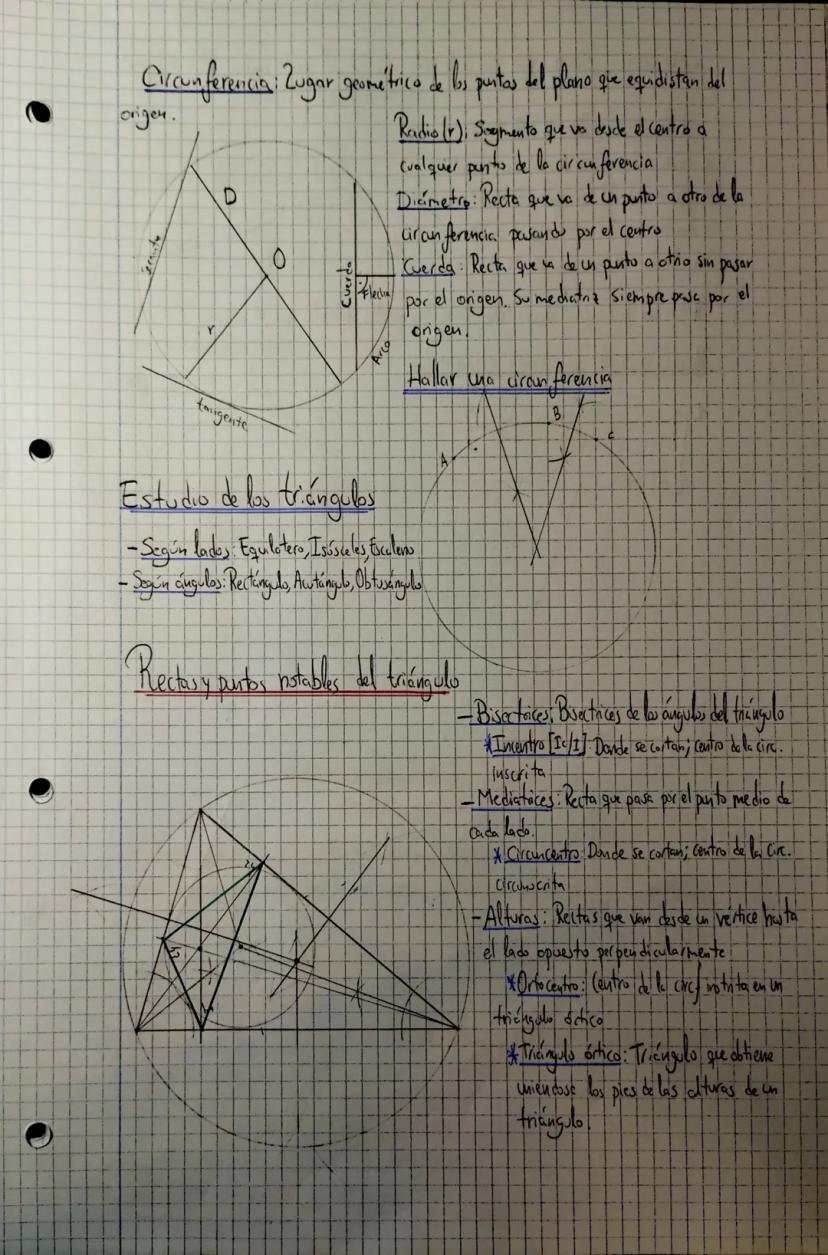 Circunferencia: Lugar geométrico de los puntos del plano que equidistan del
origen.
Radio (r): Segmento que va desde el centro a
cualquer punto de la circunferencia
Diámetro: Recta que va de un punto a otro de la
circunferencia pasando por el centro
Cuerda: Recta que va de un punto a otrio sin pasar
por el origen. Su mediatriz siempre pasa por el
origen.
D
O
r
Cuerda
Flecha
Arco
tangente
Hallar una circunferencia
A
B
C
Estudio de los triángulos
- Según lados: Equilatero, Isósceles, Escaleno
- Según ángulos: Rectángulo, Acutángulo, Obtusángulo
Rectas y puntos notables del triángulo
- Bisectrices: Bisectrices de los ángulos del triángulo
* Incentro [Ic/I] Donde se cortan; centro de la circ.
inscrita
- Mediatrices: Recta que pasa por el punto medio de
cada lado.
* Circuncentro: Donde se cortan; centro de la circ.
circunscrita
- Alturas: Rectas que van desde un vértice hasta
el lado opuesto perpendicularmente
* Ortocentro: Centro de la circf instrita en un
triángulo órtico
* Triángulo órtico: Triángulo que obtiene
uniendose los pies de las alturas de un
triángulo.